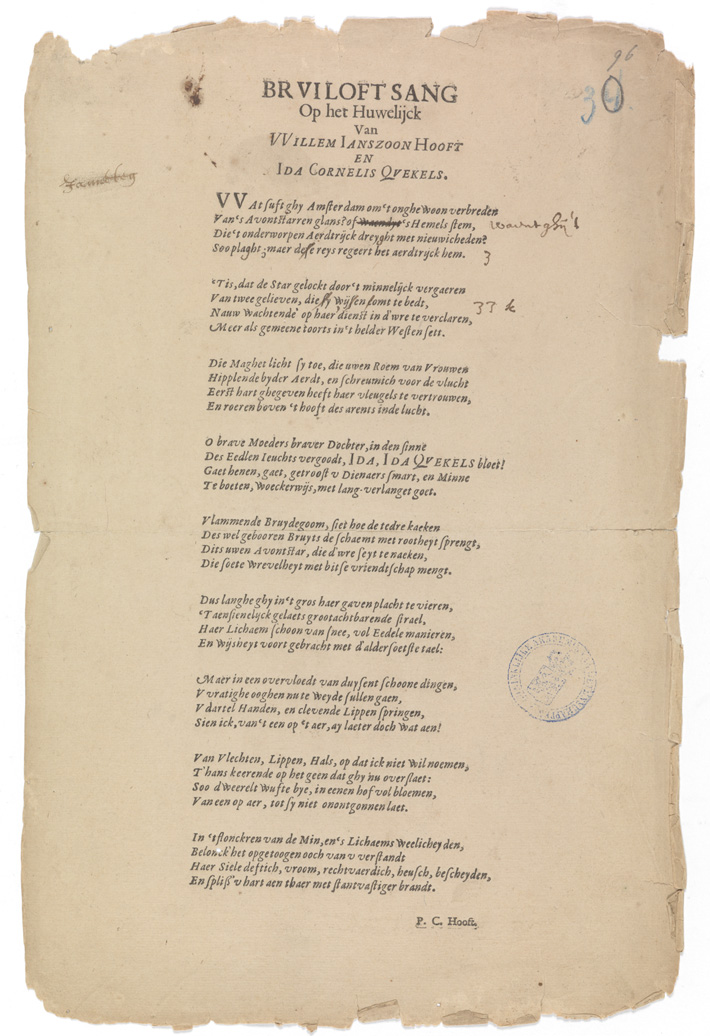 96
30
BRVILOFT SANG
Op het Huwelijck
Van
VVILLEM IANSZOON HOOFT
EN
IDA CORNELIS QVEKELS.
VVAt suft ghy Amsterdam om't onghewoon verbreden
Van's Avontstarren glans? of waendy's Hemels stem, waent ghij't
Die't onderworpen Aerdtrijck dreyght met nieuwicheden?
Soo plaght; maer dese reys regeert het aerdtrijck hem. 3
'Tis, dat de Star gelockt door't minnelijck vergaeren
Van twee gelieven, die sy wijsen somt te bedt, 33
Nauw Wachtende op haer dienst in d'wre te verclaren,
Meer als gemeene toorts in't helder Westen sett.
Die Maghet licht sy toe, die uwen Roem van Vrouwen
Hipplende by der Aerdt, en schreumich voor de vlucht
Eerst hart ghegeven heeft haer vleugels te vertrouwen,
En roeren boven 't hooft des arents inde lucht.
O brave Moeders braver Dochter, in den sinne
Des Eedlen Ieuchts vergoodt, IDA, IDA QVEKELS bloet!
Gaet henen, gaet, getroost v Dienaers smart, en Minne
Te boeten, Woeckerwijs, met lang-verlanget goet.
Vlammende Bruydegoom, siet hoe de tedre kaeken
Des wel gebooren Bruyts de schaemt met rootheyt sprengt,
Dits uwen Avontstar, die d'wre seyt te naeken,
Die soete Wrevelheyt met bitse vriendtschap mengt.
Dus langhe ghy in't gros haer gaven placht te vieren,
'Taensienelijck gelaets grootachtbarende strael,
Haer Lichaem schoon van snee, vol Eedele manieren,
En Wijsheyt voort gebracht met d'aldersoetste tael:
Maer in een overvloedt van duysent schoone dingen,
V vratighe ooghen nu te Weyde sullen gaen,
V dartel Handen, en clevende Lippen springen,
Sien ick, van't een op 't aer, ay laeter doch Wat aen!
Van Vlechten, Lippen, Hals, op dat ick niet Wil noemen,
T'hans keerende op het geen dat ghy nu overslaet:
Soo d'Weerelt Wufte bye, in eenen hof vol bloemen,
Van een op aer, tot sy niet onontgonnen laet.
In 'tflonckren van de Min, en's Lichaems Weelicheyden,
Belonck het opgetoogen ooch van v verstandt
Haer Siele deftich, vroom, rechtvaerdich, heusch, bescheyden,
En splist v hart aen thaer met stantvastiger brandt.
P. C. Hooft.